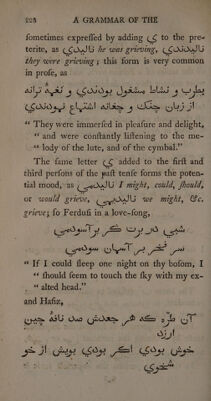 228 A GRAMMAR OF THE
sometimes expressed by adding ي to the pre-
terite, as نالیدي he was grieving, نالیدندي
they were grieving ; this form is very common
in prose, as
بطرب و نشاط مشغول بودندي و نغمه ترانه
از زبان چنگ و چغانه اشتماع نمودندي
“ They were immersed in pleasure and delight,
“ and were constantly listening to the me-
“ lody of the lute, and of the cymbal.”
The same letter ي added to the first and
third persons of the past tense forms the poten-
tial mood, as نالیدمي I might, could, should,
or would grieve, نالیدیمي we might, &c.
grieve; so Ferdusi in a love-song,
شبي در برت گر بر آسودمي
سر فخر بر آسمان سودمي
“ If I could sleep one night on thy bosom, I
“ should seem to touch the sky with my ex-
“ alted head.”
and Hafiz,
آن طره که هر جعدش صد نافه چین
ارزد
خوش بودي اگر بودي بویش از خو
شخوي